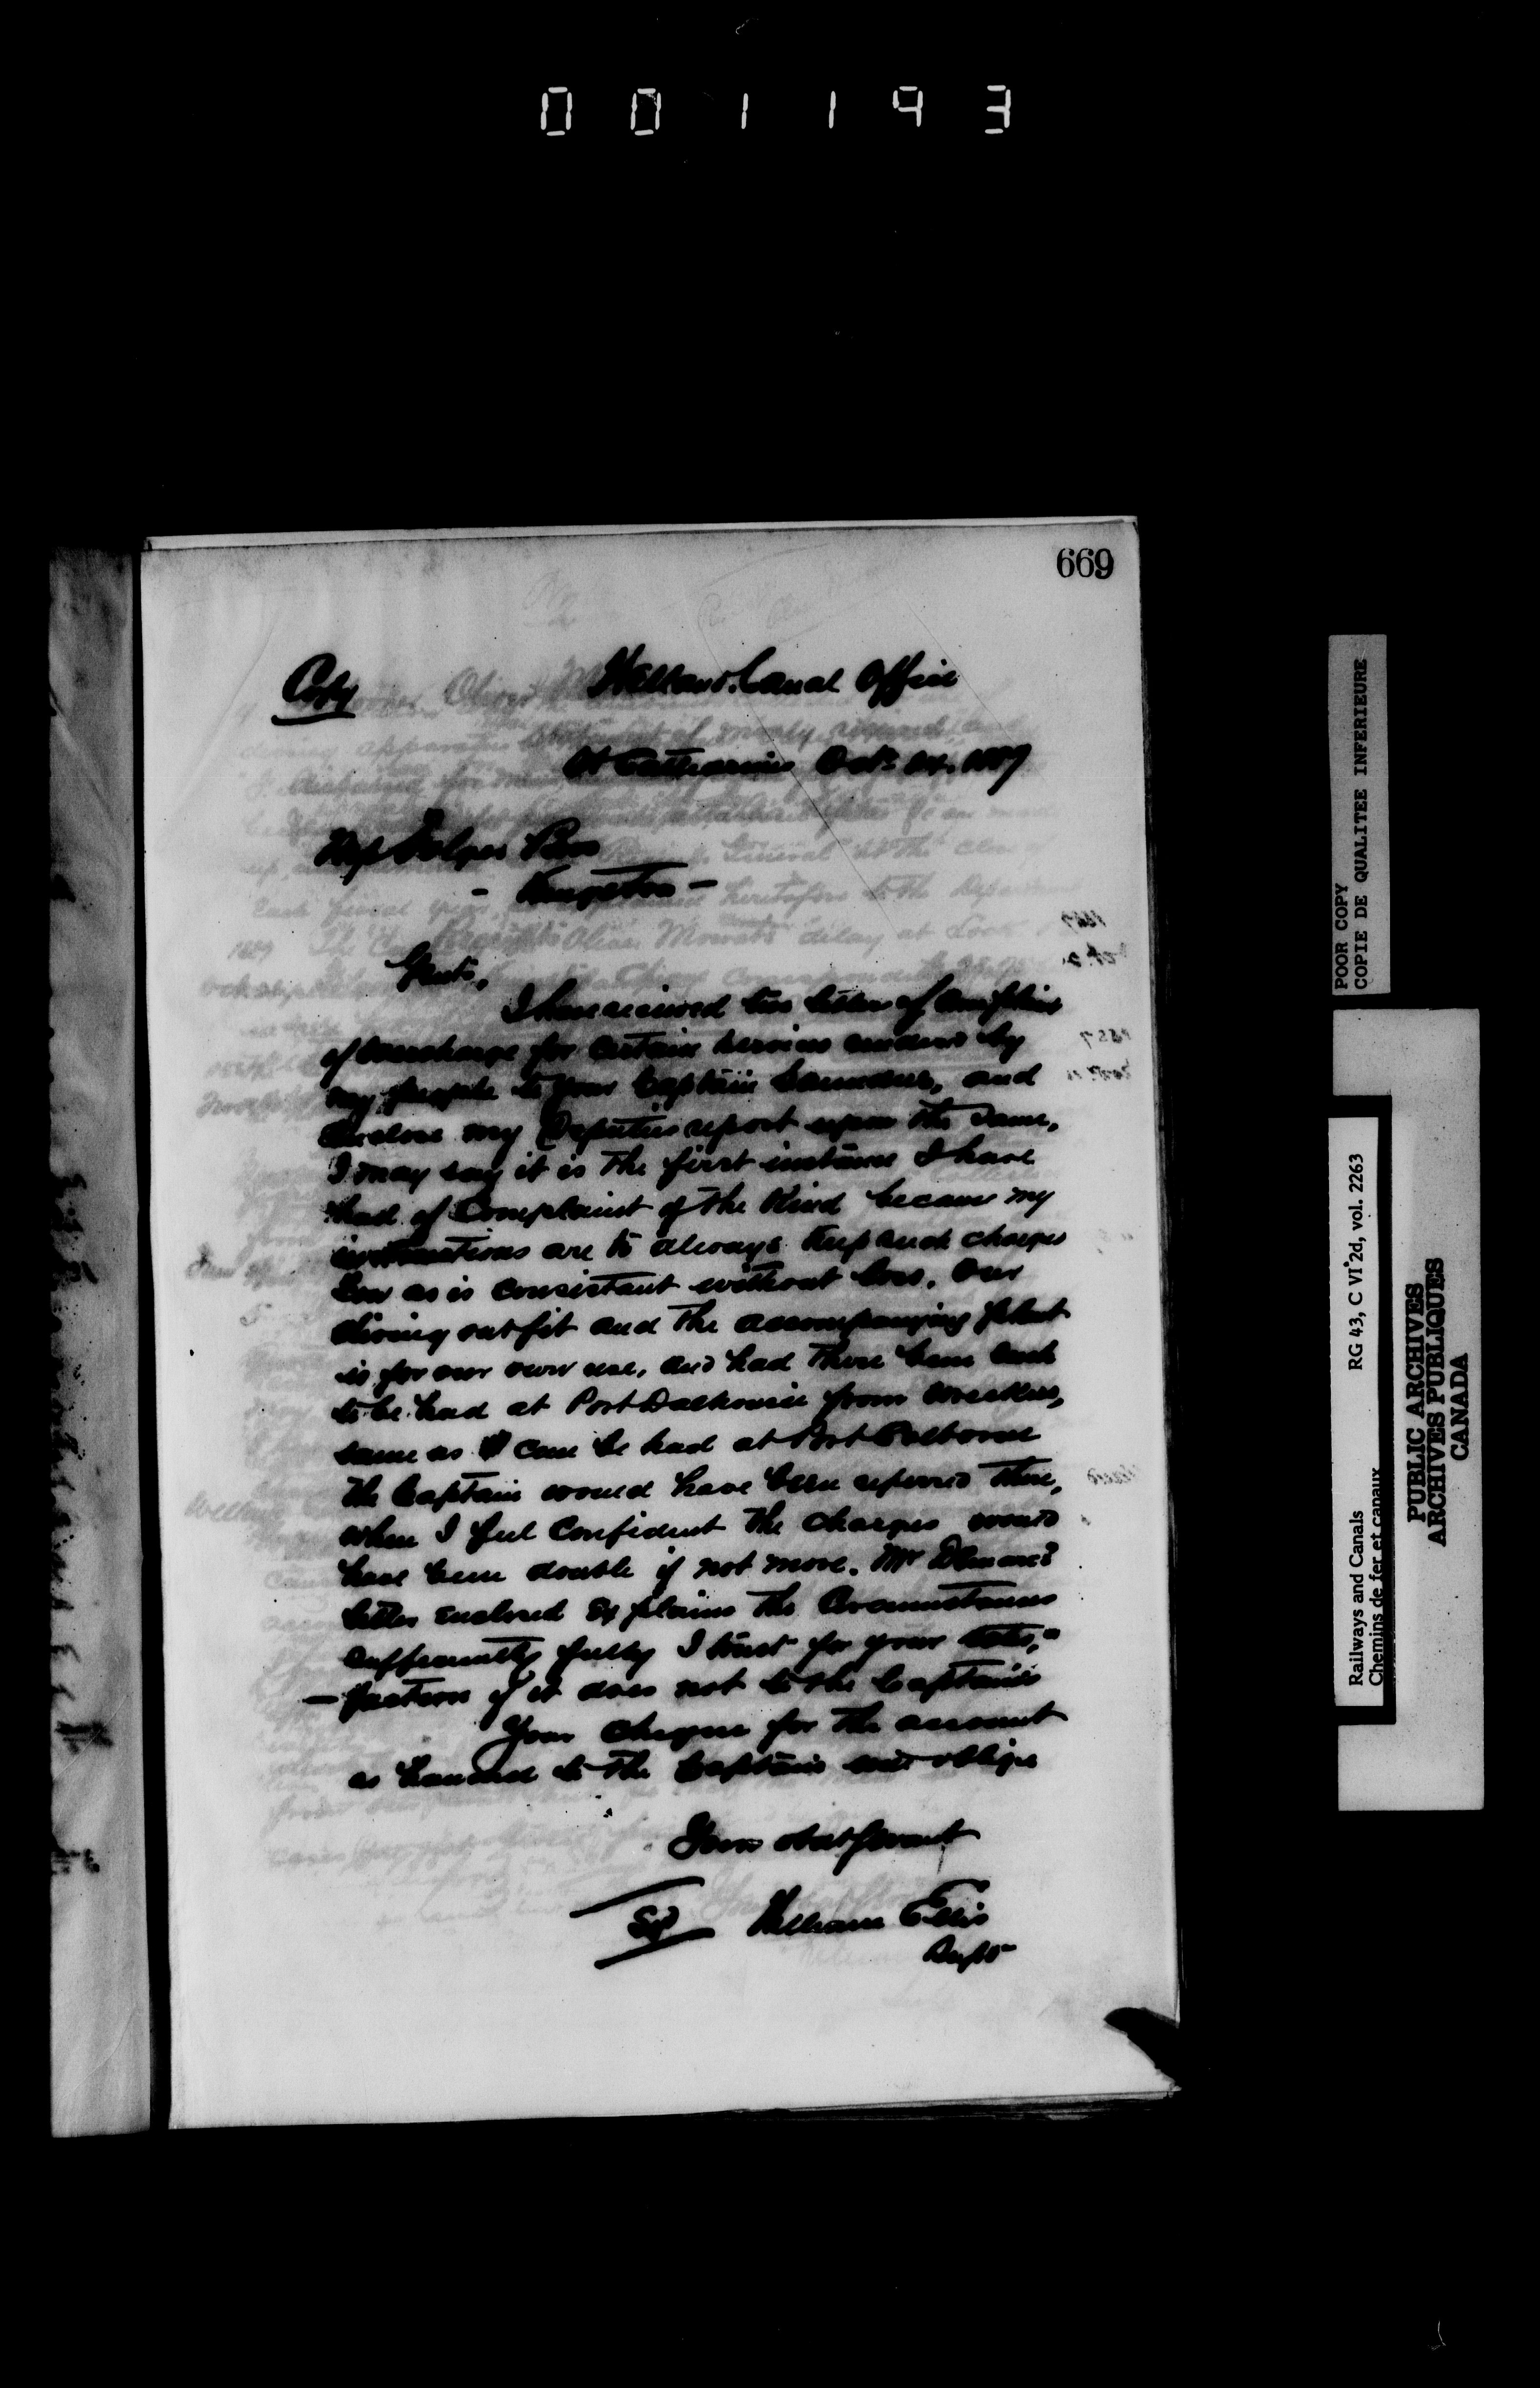 001193
669
Copy
Welland Canal Office
St Catharines Octr 24. 1889
Mess Folger Bros
- Kingston -
Gents,
I have received two letters of Complaint
of overcharge for certain services rendered by
my people to your Captain Saunders, and
Enclose my Deputies report upon the same,
I may say it is the first instance I have
had of Complaint of the Kind because my
instructions are to always keep such charges
low as is consistant without loss. Our
diving outfit and the accompanying plant
is for our own use, and had there been such
to be had at Port Dalhousie from wreckers,
same as can be had at Port Colborne
the Captain would have been referred there,
when I feel Confident the charges would
have been double if not more. Mr
letter Enclosed Explains the Circumstances
sufficiently fully I trust for your satis,-
-faction if it does not to the Captain's
Your cheque for the account
as handed to the Captain will oblige
Your obdt servant
Sd William Ellis
Supt
POOR COPY
COPIE DE QUALITEE INFERIEURE
Railways and Canals RG 43, C VI 2d, vol. 2263
Chemins de fer et canaux
PUBLIC ARCHIVES
ARCHIVES PUBLIQUES
CANADA